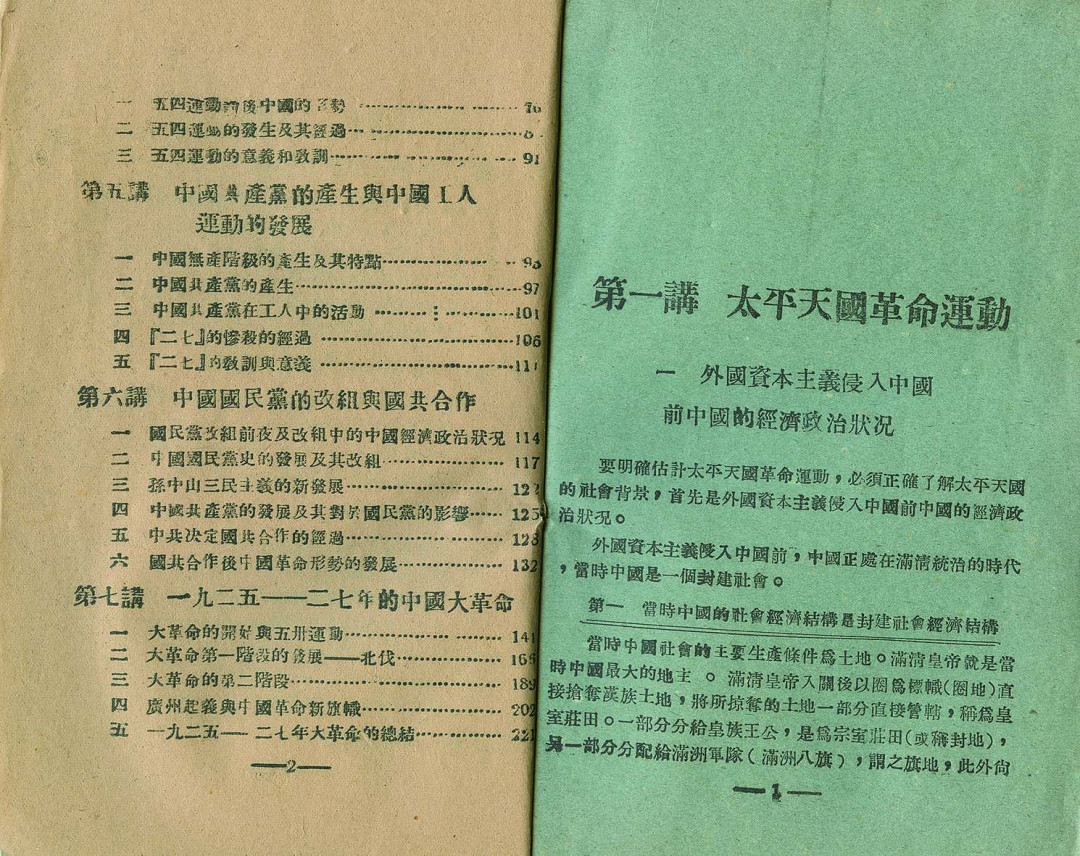 一 五四運動前後中國的形勢 …… 76
二 五四運動的發生及其經過……8
三 五四運動的意義和敎訓……91
第五講 中國共產黨的產生與中國工人
運動的發展
一 中國無產階級的產生及其特點……93
二 中國共產黨的產生……97
三 中國共產黨在工人中的活動 ……101
四 『二七』的慘殺的經過 ……106
五 『二七』的敎訓與意義 ……111
第六講 中國國民黨的改組與國共合作
一 國民黨改組前夜及改組中的中國經濟政治狀况 114
二 中國國民黨史的發展及其改組……117
三 孫中山三民主義的新發展……122
四 中國共產黨的發展及其對於國民黨的影響……125
五 中共决定國共合作的經過……128
六 國共合作後中國革命形勢的發展……132
第七講 一九二五——二七年的中國大革命
一 大革命的開始與五卅運動……141
二 大革命第一階段的發展——北伐……166
三 大革命的第二階段……189
四 廣州起義與中國革命新旗幟……202
五 一九二五——二七年大革命的總結……221
—2—
第一講 太平天國革命運動
一 外國資本主義侵入中國
前中國的經濟政治狀况
要明確估計太平天國革命運動，必須正確了解太平天國
的社會背景，首先是外國資本主義侵入中國前中國的經濟政
治狀况。
外國資本主義侵入中國前，中國正處在滿淸統治的時代
，當時中國是一個封建社會。
第一 當時中國的社會經濟結構是封建社會經濟結構
當時中國社會的主要生產條件爲土地。滿淸皇帝就是當
時中國最大的地主 。滿淸皇帝入關後以圈爲標幟(圈地)直
接搶奪漢族土地，將所掠奪的土地一部分直接管轄，稱爲皇
室莊田。一部分分給皇族王公，是爲宗室莊田(或稱封地)，
另一部分分配給滿洲軍隊(滿洲八旗)，謂之旗地，此外尙
—1—